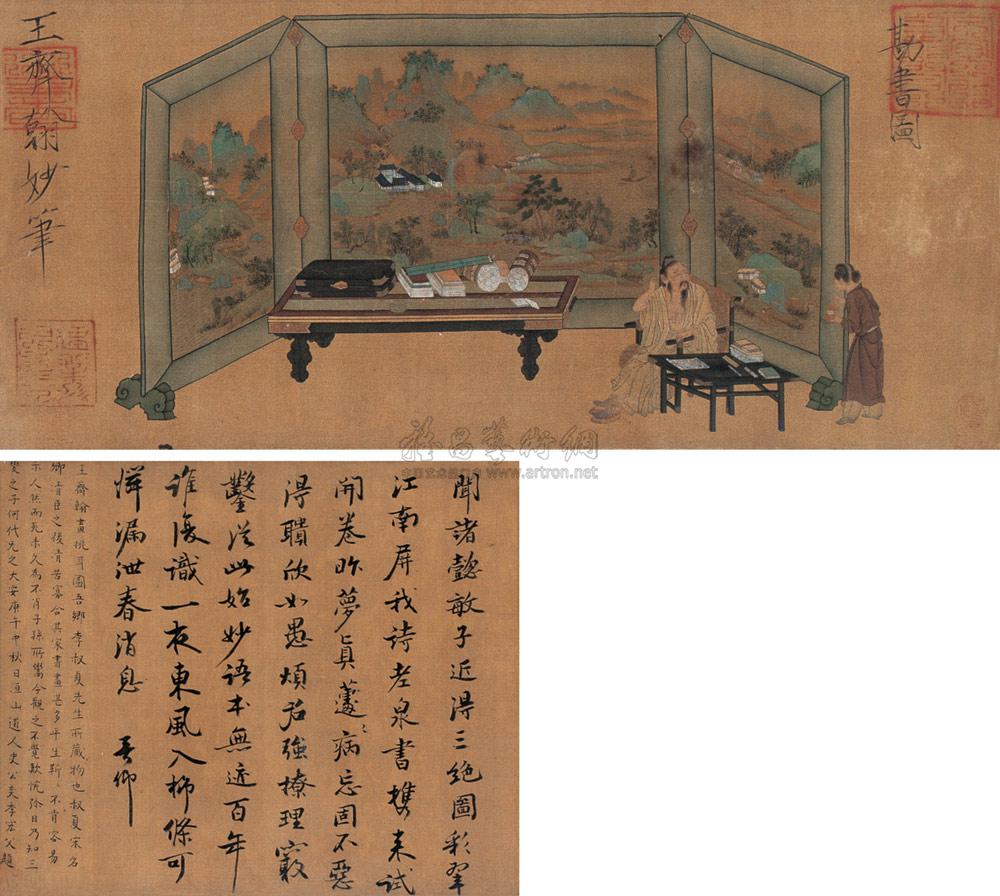 勘書圖
王齊翰妙筆
雅昌藝術網
www.artron.net
聞諸懿敏子近得三絕圖彩翠
江南屏我詩老泉書攜來試
開卷昨夢真蘧〻病忘固不惡
得聵欣如愚煩君強撩理竅
鑿從此始妙語本無近百年
誰復識一夜東風入柳條可
憐漏泄春消息 吾仰
王齊翰畫挑耳圖吾鄉李叔夏先生所藏物也叔夏宋名
卿青臣之後清苦寡合其家書畫甚多平生靳〻不肯容易
示人然而死未久為不肖子孫所鬻今觀之不覺歎恍終日乃知三
癸之子何代無之大安庚午中秋日恒山道人史公奕季宏父題